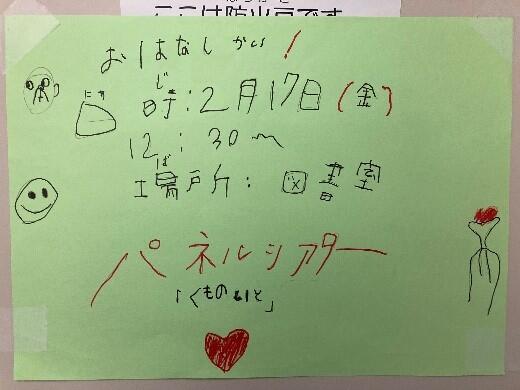 ここは防火戸です
おはなしかい!
じ
時:2月17日(金)
12:30～
ば
場所:図書室
パネルシアター
「くものいと」